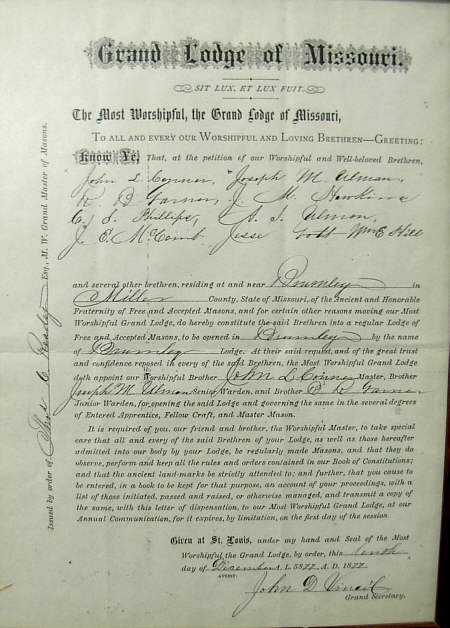 Grand Lodge of Missouri.
SIT LUX, ET LUX FUIT.
The Most Worshipful, the Grand Lodge of Missouri,
TO ALL AND EVERY OUR WORSHIPFUL AND LOVING BRETHREN—GREETING:
Know Ye, That, at the petition of our Worshipful and Well-beloved Brethren,
John L. Connor, Joseph M. Ulman,
R. D. Garnor, J. M. Hawkins
C. S. Phillips, A. J. Ulmon,
J. E. McComb. Jesse Wm E Hill
and several other brethren, residing at and near Brumley in
Miller County, State of Missouri, of the Ancient and Honorable
Fraternity of Free and Accepted Masons, and for certain other reasons moving our Most
Worshipful Grand Lodge, do hereby constitute the said Brethren into a regular Lodge of
Free and Accepted Masons, to be opened in Brumley by the name
of Brumley Lodge. At their said request, and of the great trust
and confidence reposed in every of the said Brethren, the Most Worshipful Grand Lodge
doth appoint our Worshipful Brother John L Connor Master, Brother
Joseph M. Ulman Senior Warden, and Brother R D Garnor
Junior Warden, for opening the said Lodge and governing the same in the several degrees
of Entered Apprentice, Fellow Craft, and Master Mason.
It is required of you, our friend and brother, the Worshipful Master, to take special
care that all and every of the said Brethren of your Lodge, as well as those hereafter
admitted into our body by your Lodge, be regularly made Masons, and that they do
observe, perform and keep all the rules and orders contained in our Book of Constitutions;
and that the ancient land-marks be strictly attended to; and further, that you cause to
be entered, in a book to be kept for that purpose, an account of your proceedings, with a
list of those initiated, passed and raised, or otherwise managed, and transmit a copy of
the same, with this letter of dispensation, to our Most Worshipful Grand Lodge, at our
Annual Communication, for it expires, by limitation, on the first day of the session.
Given at St. Louis, under my hand and Seal of the Most
Worshipful the Grand Lodge, by order, this tenth
day of December A. L. 5877. A. D. 1877.
ATTEST:
John D. Vincil
Grand Secretary.
Issued by order of Thos C. Ready Esq., M. W. Grand Master of Masons.